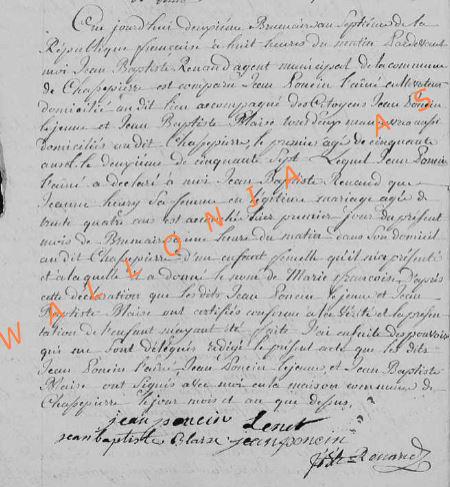 Cejourd'hui deuxième Brumaire an Septième de la
République française à huit heures du matin Pardevant
moi Jean Baptiste Renard agent municipal de la commune
de Chassepierre est comparu Jean Poncin l'ainé cultivateur
domicilié au dit lieu accompagné des Citoyens Jean Poncin
lejeune et Jean Baptiste Blaise tous deux aussi
domiciliés au dit Chassepierre, le premier agé de cinquante
ans et le deuxieme de cinquante Sept Lequel Jean Poncin
l'ainé a déclaré à moi Jean Baptiste Renard que
Jeanne henry Sa femme en légitime mariage agée de
trente quatre ans est accouchée hier premier jour du présent
mois de Brumaire a une heure du matin dans Son domicil
au dit Chassepierre d'un enfant femelle qu'il m'a présenté
et a laquelle il a donné le nom de Marie françoise D'après
cette déclaration que les dits Jean Poncin le jeune et Jean
Baptiste Blaise ont certifiés conforme a la vérité et la présen
tation de l'enfant m'ayant été faite J'ai en suite des pouvoirs
qui me Sont délégués rédigé le présent acte que les dits
Jean Poncin l'ainé, Jean Poncin lejeune et Jean Baptiste
Blaise ont signés avec moi en la maison commune de
Chassepierre les jour mois et an que dessus.
jean poncin Lenet
jean baptiste Blaise jean poncin
Renard
WALLONIA AS